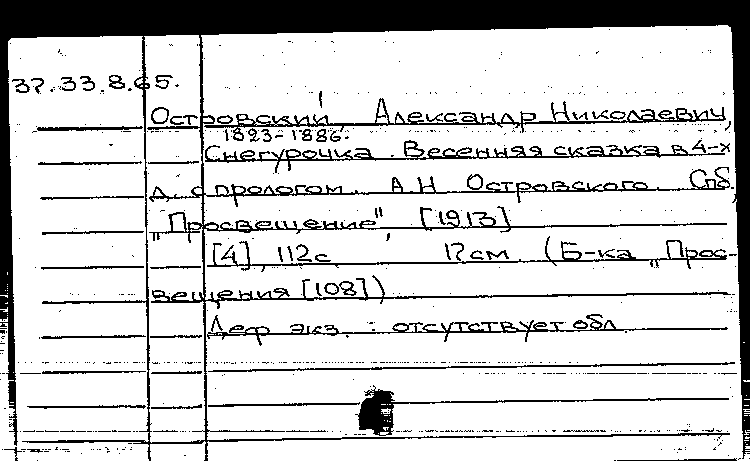 37.33.8.65.
Островский, Александр Николаевич,
1823-1886.
Снегурочка. Весенняя сказка в 4-х
д. с прологом. А.Н. Островского. Спб,
"Просвещение", [1913]
[4], 112 с. 17 см. (Б-ка „Прос-
вещения [108])
Деф. экз.: отсутствует обл.